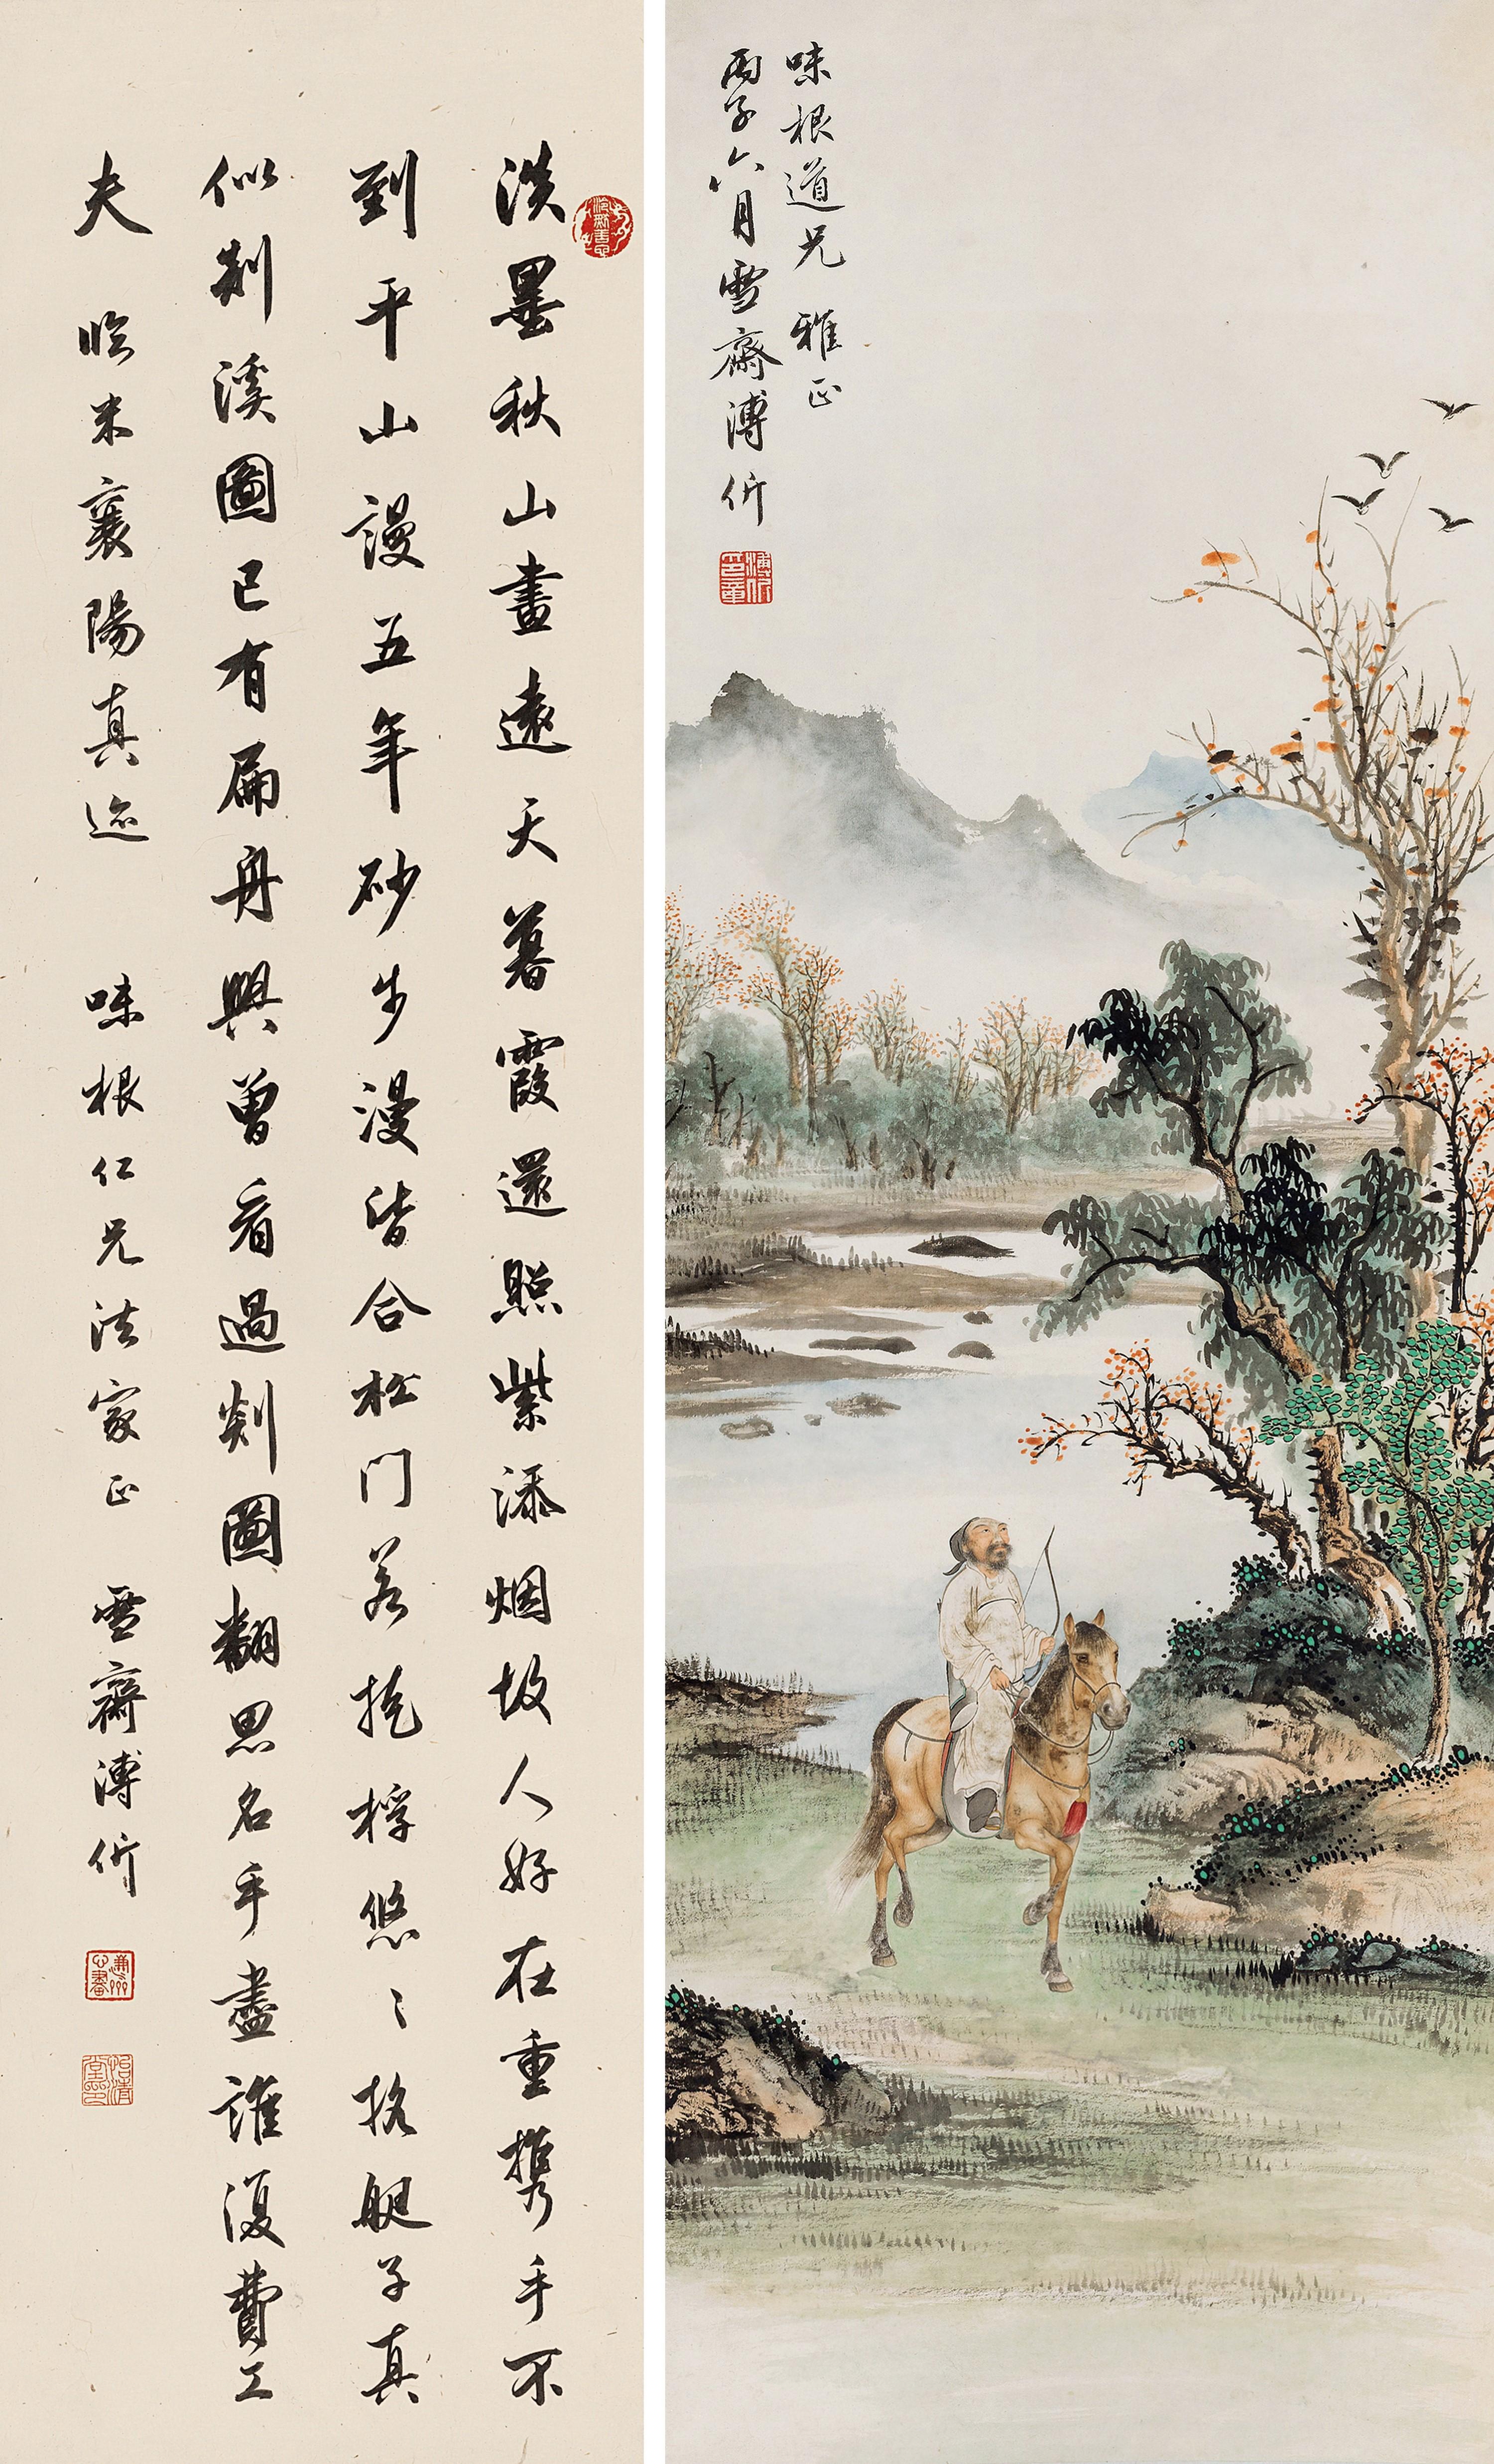 淡墨秋山畫遠天暮霞還照紫添烟故人好在重携手不
到平山謾五年砂步漫皆合松门若掩桴悠〻搖艇子真
似剡溪圖已有扁舟興曾看過剡圖翻思名手盡誰復費工
夫 臨米襄陽真迹 味根仁兄法家正 雪齋溥伒
味根道兄 雅正
丙子六月雪齋溥伒